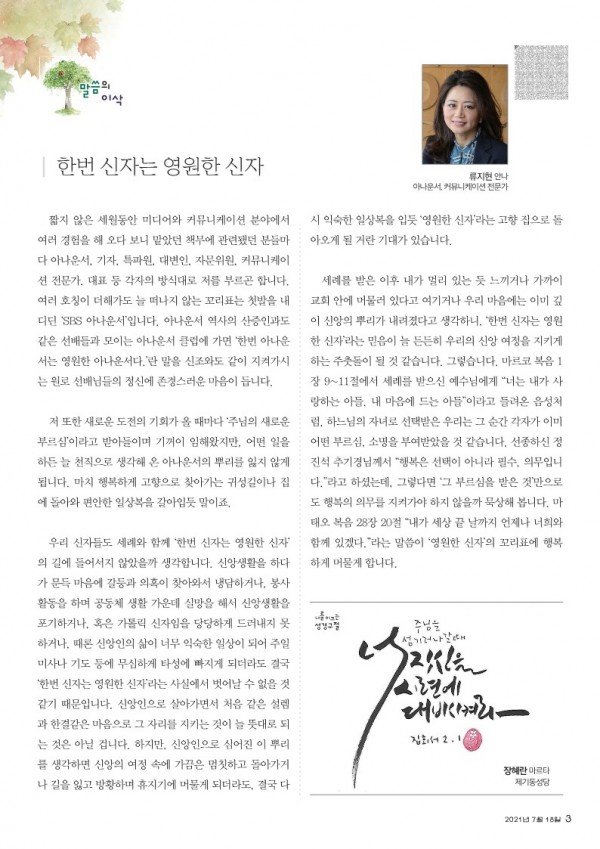 말씀의
이삭
한번 신자는 영원한 신자
류지현 안나
아나운서, 커뮤니케이션 전문가
짧지 않은 세월동안 미디어와 커뮤니케이션 분야에서
여러 경험을 해 오다 보니 맡았던 책무에 관련됐던 분들마
다 아나운서, 기자, 특파원, 대변인, 자문위원, 커뮤니케이
션 전문가, 대표 등 각자의 방식대로 저를 부르곤 합니다.
여러 호칭이 더해가도 늘 떠나지 않는 꼬리표는 첫발을 내
디딘 ‘SBS 아나운서’입니다. 아나운서 역사의 산증인과도
같은 선배들과 모이는 아나운서 클럽에 가면 ‘한번 아나운
서는 영원한 아나운서다.’란 말을 신조와도 같이 지켜가시
는 원로 선배님들의 정신에 존경스러운 마음이 듭니다.
저 또한 새로운 도전의 기회가 올 때마다 ‘주님의 새로운
부르심’이라고 받아들이며 기꺼이 임해왔지만, 어떤 일을
하든 늘 천직으로 생각해 온 아나운서의 뿌리를 잃지 않게
됩니다. 마치 행복하게 고향으로 찾아가는 귀성길이나 집
에 돌아와 편안한 일상복을 갈아입듯 말이죠.
우리 신자들도 세례와 함께 ‘한번 신자는 영원한 신자’
의 길에 들어서지 않았을까 생각합니다. 신앙생활을 하다
가 문득 마음에 갈등과 의혹이 찾아와서 냉담하거나, 봉사
활동을 하며 공동체 생활 가운데 실망을 해서 신앙생활을
포기하거나, 혹은 가톨릭 신자임을 당당하게 드러내지 못
하거나, 때론 신앙인의 삶이 너무 익숙한 일상이 되어 주일
미사나 기도 등에 무심하게 타성에 빠지게 되더라도 결국
‘한번 신자는 영원한 신자’라는 사실에서 벗어날 수 없을 것
같기 때문입니다. 신앙인으로 살아가면서 처음 같은 설렘
과 한결같은 마음으로 그 자리를 지키는 것이 늘 뜻대로 되
는 것은 아닐 겁니다. 하지만, 신앙인으로 심어진 이 뿌리
를 생각하면 신앙의 여정 속에 가끔은 멈칫하고 돌아가거
나 길을 잃고 방황하며 휴지기에 머물게 되더라도, 결국 다
시 익숙한 일상복을 입듯 ‘영원한 신자’라는 고향 집으로 돌
아오게 될 거란 기대가 있습니다.
세례를 받은 이후 내가 멀리 있는 듯 느끼거나 가까이
교회 안에 머물러 있다고 여기거나 우리 마음에는 이미 깊
이 신앙의 뿌리가 내려졌다고 생각하니, ‘한번 신자는 영원
한 신자’라는 믿음이 늘 든든히 우리의 신앙 여정을 지키게
하는 주춧돌이 될 것 같습니다. 그렇습니다. 마르코 복음 1
장 9~11절에서 세례를 받으신 예수님에게 “너는 내가 사
랑하는 아들, 내 마음에 드는 아들”이라고 들려온 음성처
럼, 하느님의 자녀로 선택받은 우리는 그 순간 각자가 이미
어떤 부르심, 소명을 부여받았을 것 같습니다. 선종하신 정
진석 추기경님께서 “행복은 선택이 아니라 필수, 의무입니
다.”라고 하셨는데, 그렇다면 ‘그 부르심을 받은 것’만으로
도 행복의 의무를 지켜가야 하지 않을까 묵상해 봅니다. 마
태오 복음 28장 20절 “내가 세상 끝 날까지 언제나 너희와
함께 있겠다.”라는 말씀이 ‘영원한 신자’의 꼬리표에 행복
하게 머물게 합니다.
나를 이끄는
성경구절
주님을
섬기러 나아갈 때
너 자신을
시련에
대비시켜라
집회서 2.1
장혜란 마르타
제기동성당
2021년 7월 18일 3